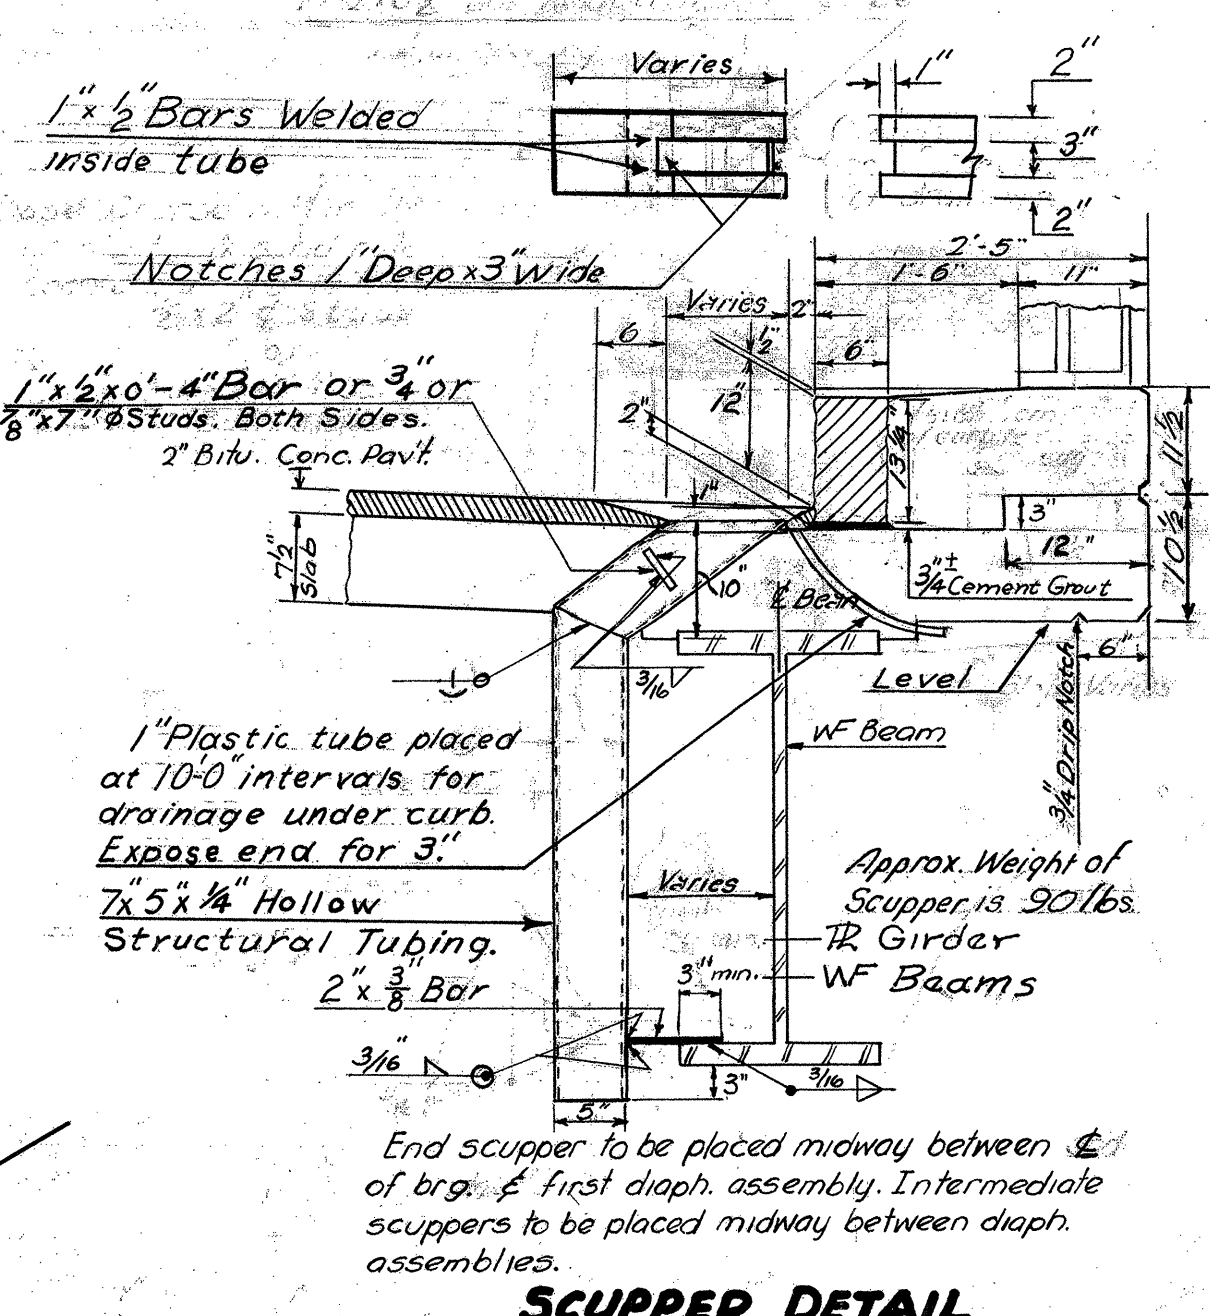 Varies
1"
2"
1"x ½" Bars Welded
inside tube
3"
2"
2'-5"
1'-6"
11"
Notches 1" Deep x 3" Wide
Varies
2"
6
½"
6"
1"x ½"x 0'-4" Bar or ¾" or
⅞"x7" ϕ Studs. Both Sides.
2" Bitu. Conc. Pav't.
12
2"
13 ¼"
11 ½
1"
3"
12"
10 ½
7 ½"
Slab
10"
℄ Beam
¾"± Cement Grout
3/16
Level
6"
¾" Drip Notch
1" Plastic tube placed
at 10'-0" intervals for
drainage under curb.
Expose end for 3."
WF Beam
7"x 5"x ¼" Hollow
Structural Tubing.
Varies
Approx. Weight of
Scupper is 90 lbs.
PL Girder
WF Beams
2"x ⅜" Bar
3" min.
3/16"
3"
3/16
5"
End scupper to be placed midway between ℄
of brg. & first diaph. assembly. Intermediate
scuppers to be placed midway between diaph.
assemblies.
SCUPPER DETAIL